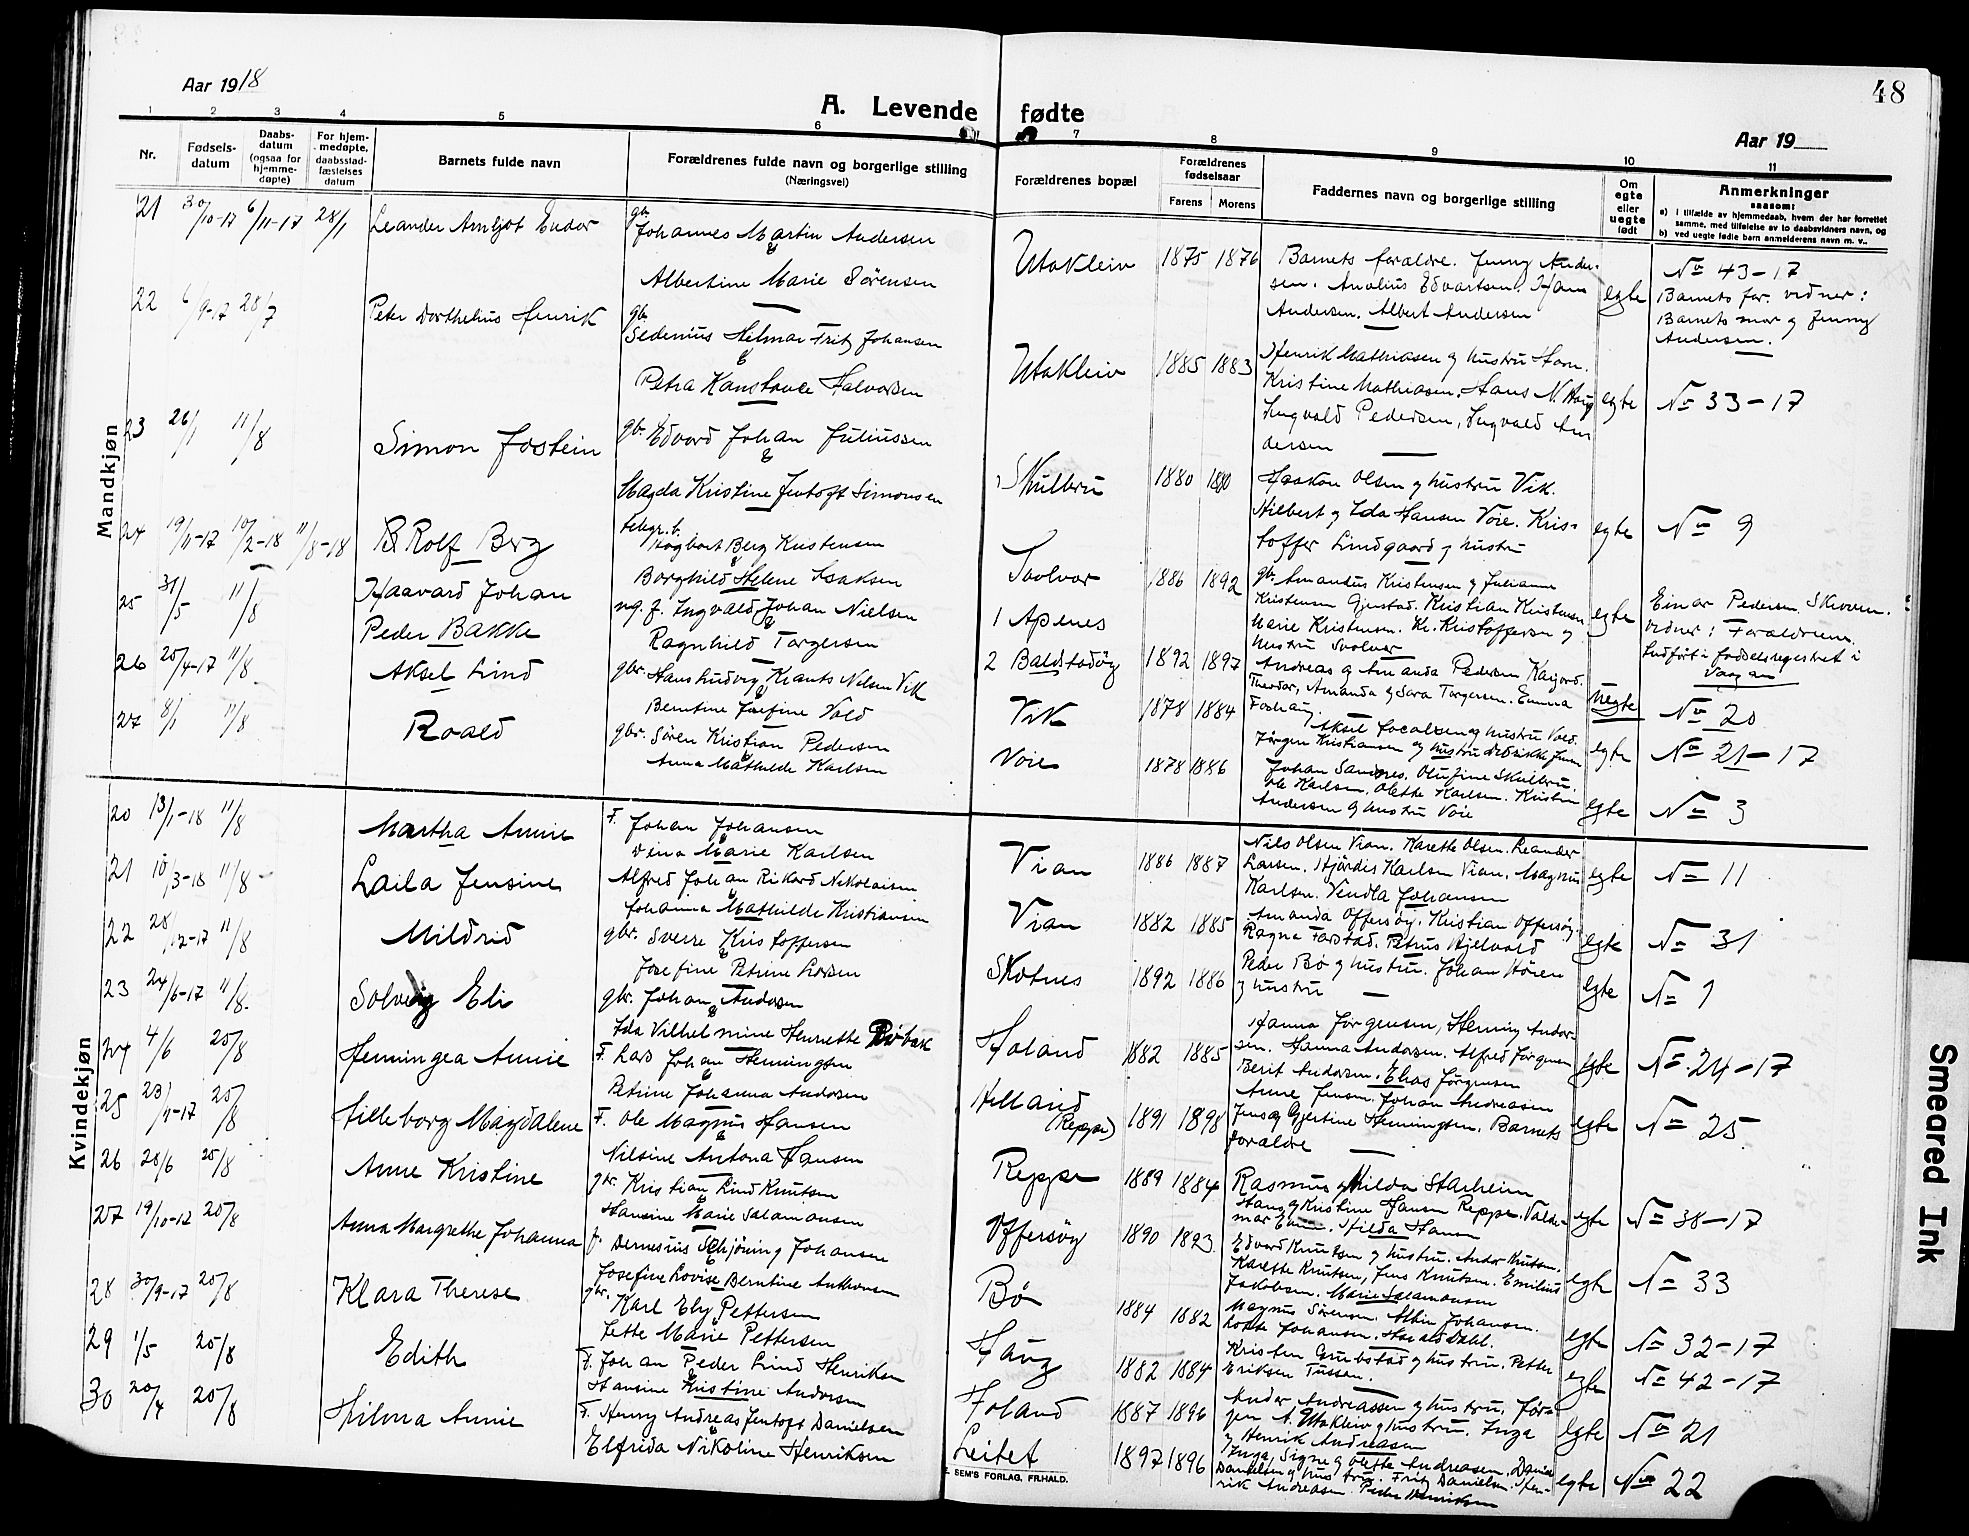 48
Aar 1918
A. Levende fødte
Aar 19
1 2 3 4 5 6 7 8 9 10 11
Nr.
Fødsels-
datum
Daabs-
datum
(ogsaa for
hjemme-
døpte)
For hjem-
medøpte,
daabsstad-
fæstelses
datum
Barnets fulde navn
Forældrenes fulde navn og borgerlige stilling
(Næringsvei)
Forældrenes bopæl
Forældrenes
fødselsaar
Farens Morens
Faddernes navn og borgerlige stilling
Om
egte
eller
uegte
født
Anmerkninger
saasom:
a) i tilfælde av hjemmedaab, hvem der har forrettet
samme, med tilføielse av to daabsvidners navn, og
b) ved uegte fødte barn anmelderens navn m. v..
Mandkjøn
21 30/10-17 6/11-17 28/1 Leander Arnljot Endor
gbr. Johannes Martin Andersen
&
Albertine Marie Sørensen
Utakleiv 1875 1876
Barnets forældre. Jenny Ander-
sen. Analius Edvartsen. Hans
Andersen. Albert Andersen
egte
No 43-17
Barnets far. vidner:
Barnets mor og Jenny
Andersen.
22 6/9-17 28/7 Peter Dorthelius Henrik
gbr. Sedenius Helmar Fritz Johansen
&
Petra Konstance Halvorsen
Utakleiv 1885 1883
Henrik Mathiasen og hustru Horn.
Kristine Mathiasen. Hans N. Haug
Ingvald Pedersen, Ingvald An
dersen
egte
No 33-17
23 26/1 11/8 Simon Jostein
gbr. Edvard Johan Juliussen
&
Magda Kristine Jentoft Simonsen
Skulbru 1880 1880
Haakon Olsen og hustru Vik.
Hilbert og Ida Hansen Voie. Kris-
toffer Lindgaard og hustru
egte
No 9
24 19/11-17 10/2-18 11/8-18 Rolf Berg
telegr.b. Dagbart Berg Kristensen
Borghild Helene Isaksen
Svolvær 1886 1892
gbr. Amandus Kristensen og Julianne
Kristensen Gjerstad. Kristian Kristensen
Marie Kristensen. Kr. Kristoffersen og
hustru Svolvær
egte
Einar Pedersen Skroven.
vidner: Forældrene.
Indført i fødselsregistret i
Vaagan
25 31/5 11/8 Haavard Johan
Peder Bakke
ug. f. Ingvald Johan Nielsen
&
Ragnhild Torgersen
1 Apenes
2 Baldstadøy 1892 1897
Andreas og Amanda Pedersen
Theodor, Amanda og Sara Torgersen. Emma
uegte
No 20
26 25/4-17 11/8 Aksel Lind
gbr. Hans Ludvig Krants Nilsen Vik
&
Berntine Josefine Vold
Vik 1878 1884
Aksel Jocobsen og hustru Vold.
Jørgen Kristiansen og hustru
egte
No 21-17
27 8/1 11/8 Roald
gbr. Søren Kristian Pedersen
&
Anna Mathilde Karlsen
Voie 1878 1886
Johan Sandnes. Olufine Skulbru.
Ole Karlsen. Olette Karlsen. Kristen
Andersen og hustru Voie
egte
No 3
Kvindekjøn
20 13/1-18 11/8 Martha Annie
F. Johan Johansen
&
Dina Marie Karlsen
Vian 1886 1887
Nils Olsen Vian. Karette Olsen. Leander
Larsen. Hjørdis Karlsen Vian. Magnus
Karlsen. Vendla Johansen
egte
No 11
21 10/3-18 11/8 Laila Jensine
Alfred Johan Rikard Nikolaisen
&
Johanna Mathilde Kristiansen
Vian 1882 1885
Amanda Offersøy. Kristian Offersøy.
Ragna Farstad. Petrus Hjelvard
egte
No 31
22 28/12-17 11/8 Mildrid
gbr. Sverre Kristoffersen
&
Josefine Petrine Larsen
Skotnes 1892 1886
Peder Bø og hustru. Johan Høien
og hustru
egte
No 1
23 24/6-17 11/8 Solveig Eli
gbr. Johan Andersen
&
Ida Vilhelmine Henriette Rørbak
Holand 1882 1885
Hanna Jørgensen, Henning Ander-
sen. Hanna Andersen. Alfred Jørgensen
Berit Andersen. Elias Jørgensen
egte
No 24-17
24 4/6 25/8 Henningea Annie
F. Lars Johan Henningsen
&
Petrine Johanna Andersen
Holland
(Reppe) 1891 1898
Anne Jensen. Johan Andreasen
Jens og Gjertine Henningsen. Barnets
forældre
egte
No 25
25 23/11-17 25/8 Lilleborg Magdalene
F. Ole Magnus Hansen
&
Nilsine Antona Hansen
Reppe 1889 1884
Rasmus og Hilda Starheim
Hans og Kristine Hansen Reppe. Valde-
mar. Hilda Hansen
egte
No 38-17
26 20/6 25/8 Anne Kristine
gbr. Kristian Lind Knutsen
&
Hansine Marie Salamonsen
Offersøy 1890 1893
Edvard Knutsen og hustru. Andor Knutsen.
Karette Knutsen, Jens Knutsen. Emilius
Jakobsen. Marie Salamonsen
egte
No 33
27 19/10-17 25/8 Anna Margrethe Johanna
f. Bernesius Schjøning Johansen
Josefine Lovise Berntine Anthonsen
Bø 1884 1882
Magnus Sørensen. Albin Johansen.
Lotte Johansen. Harald Dahl.
egte
No 32-17
28 30/9-17 25/8 Klara Therese
gbr. Karl Ely Pettersen
&
Jette Marie Pettersen
Haug 1882 1884
Kristen Grubstad og hustru. Petter
Eriksen Tussan.
egte
No 42-17
29 1/5 25/8 Edith
F. Johan Peder Lind Henriksen
Hansine Kristine Andersen
Holand 1887 1896
Andor Andreassen og hustru. Jør-
gen A. Utakleiv og hustru. Inga
og Henrik Andreasen
egte
No 21
30 20/4 25/8 Hilma Annie
F. Henry Andreas Jentoft Danielsen
&
Elfrida Nikoline Henriksen
Leitet 1897 1896
Inga, Signe og Olette Andreasen. Daniel
Danielsen og hustru. Fritz Danielsen. Hen-
rik Andreasen. Peder Henriksen
egte
No 22
SEM'S FORLAG, FR.HALD.
Smeared Ink